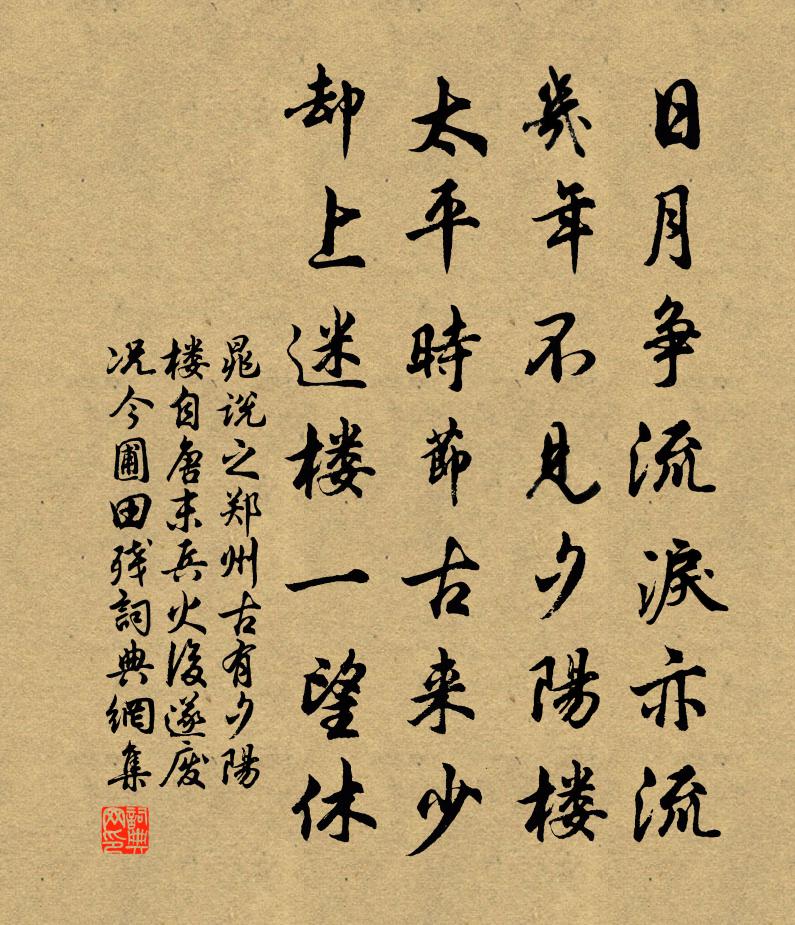 日月争流淚亦流
幾年不見夕陽楼
太平時節古来少
却上迷楼一望休
晁说之郑州古有夕陽
楼自唐末兵火後遂废
况今圃田残詞典網集
詞典网印